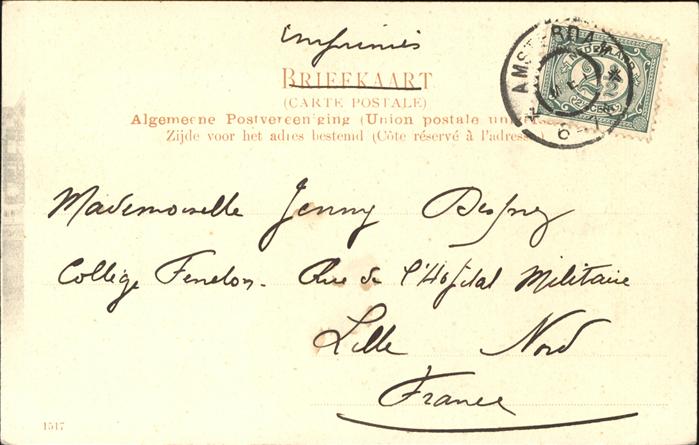 Imprimés
BRIEFKAART
(CARTE POSTALE)
Algemeene Postvereeniging (Union postale
Zijde voor het adres bestemd (Côte réservé à l'adresse)
AMSTERDAM
6
NEDERLAND
2½
CENT
Mademoiselle Jenny
Collège Fenelon. Rue de l'Hopital Militaire
Lille Nord
France
1517